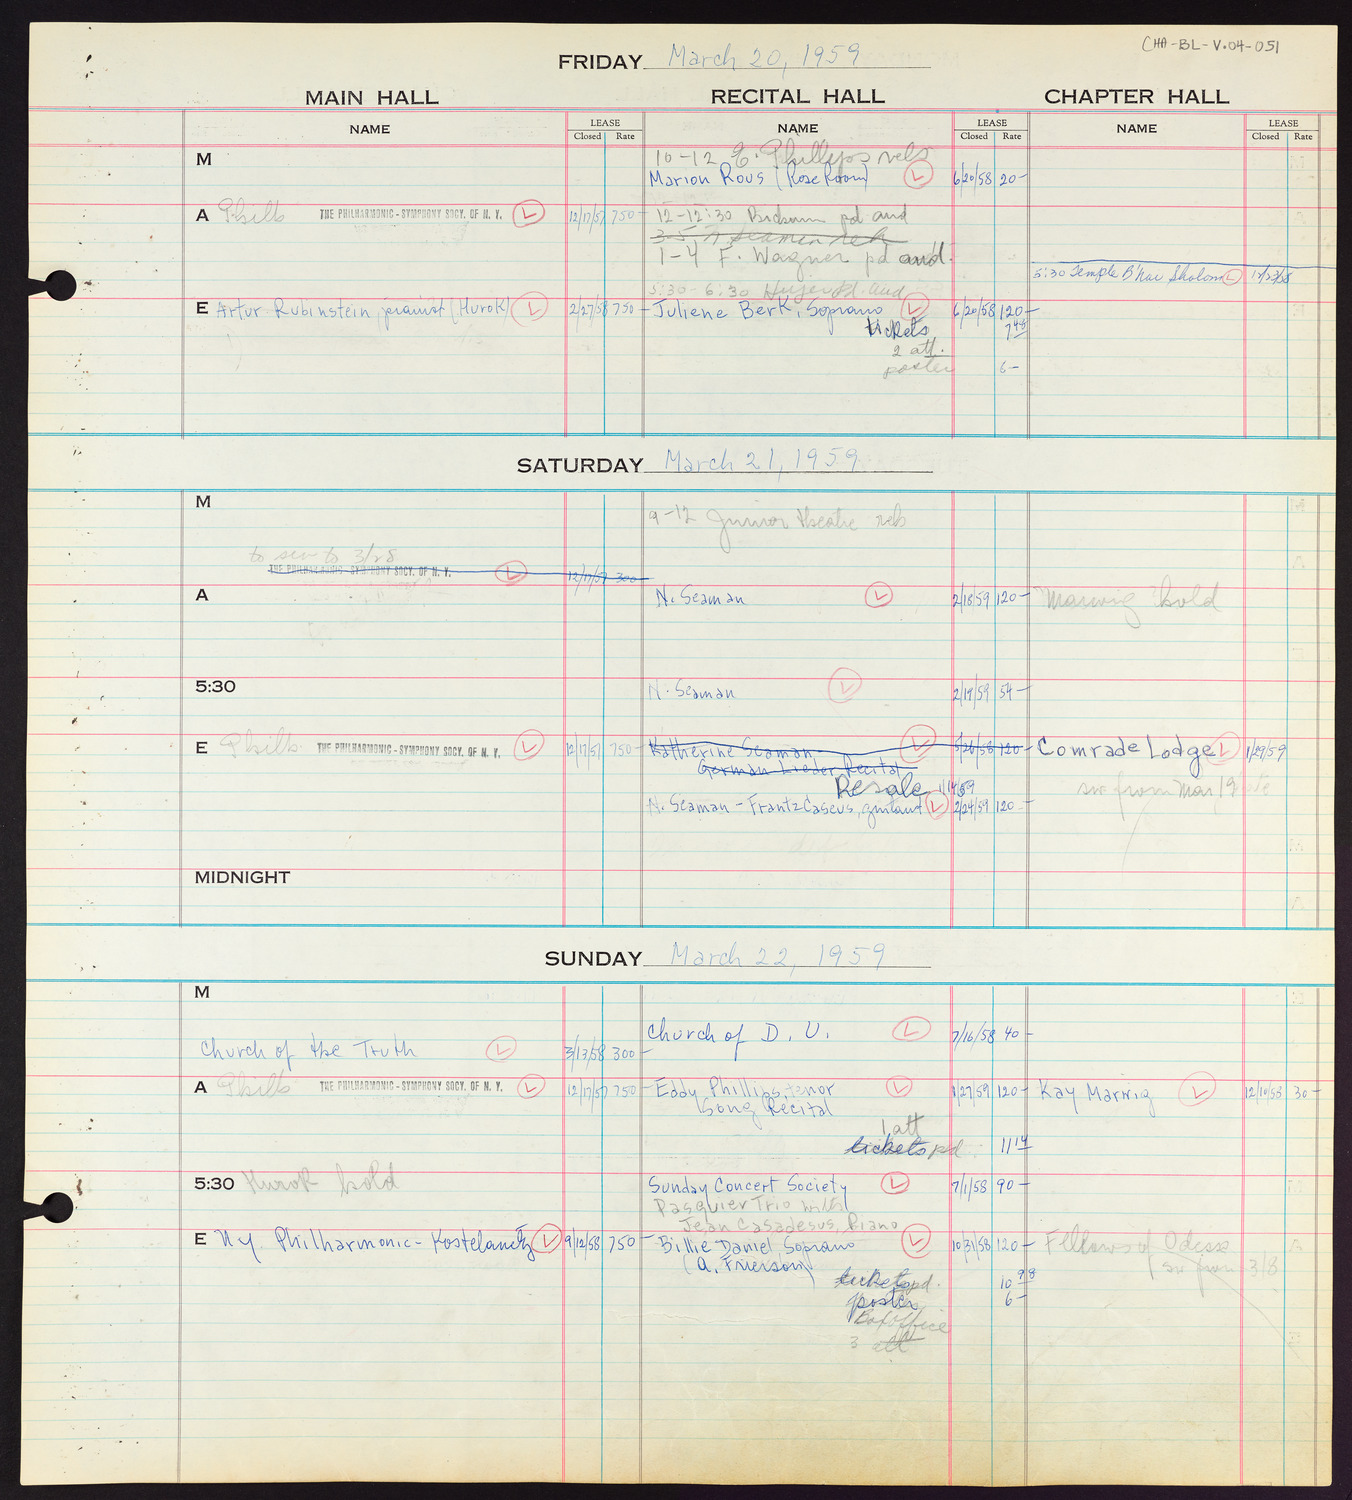 CHA-BL-V.04-051
FRIDAY March 20, 1959
MAIN HALL RECITAL HALL CHAPTER HALL
NAME LEASE Closed Rate NAME LEASE Closed Rate NAME LEASE Closed Rate
M 10-12 E. Phillips reh
Marion Rous (Rose Room) L 6/20/58 20-
A Philh THE PHILHARMONIC-SYMPHONY SOCY. OF N. Y. L 12/17/57 750- 12-12:30 pd aud
3-5 N Seaman reh
1-4 F. Wagner pd aud.
5:30 Temple B'nai Sholom L 12/23/58
5:30-6:30 pd. aud
E Artur Rubinstein, pianist (Hurok) L 2/27/58 750- Juliene Berk, Soprano L 6/20/58 120-
tickets 7 48
2 att.
poster 6-
SATURDAY March 21, 1959
M
9-12 Junior theatre reh
to 3/28
THE PHILHARMONIC-SYMPHONY SOCY. OF N. Y. L 12/17/57 300-
A N. Seaman L 2/18/59 120- Marwig hold
5:30 N. Seaman L 2/19/59 54-
E Philh THE PHILHARMONIC-SYMPHONY SOCY. OF N. Y. L 12/17/57 750- Katherine Seaman L 5/26/58 120- Comrade Lodge L 1/29/59
German Lieder Recital
Resale 1/14/59 from Mar 19
N. Seaman-Frantz Caseus, guitarist L 2/24/59 120-
MIDNIGHT
SUNDAY March 22, 1959
M
Church of D. U. L 7/16/58 40-
Church of the Truth L 3/13/58 300-
A Philh THE PHILHARMONIC-SYMPHONY SOCY. OF N. Y. L 12/17/57 750- Eddy Phillips, tenor L 1/27/59 120- Kay Marwig L 12/10/58 30-
Song Recital
1 att
tickets pd 11 14
5:30 Hurok hold Sunday Concert Society L 7/1/58 90-
Pasquier Trio with
Jean Casadesus, Piano
E N.Y. Philharmonic-Kostelanetz L 9/12/58 750- Billie Daniel, Soprano L 10/31/58 120- Fellows of Odessa
(A. Frierson) from 3/8
tickets pd. 10 98
poster 6-
Box office
3 att